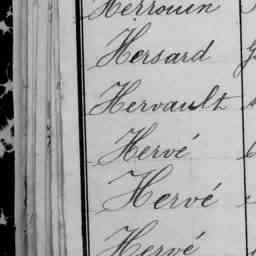 Herrouin
Hersard
Hervault
Hervé
Hervé
Hervé